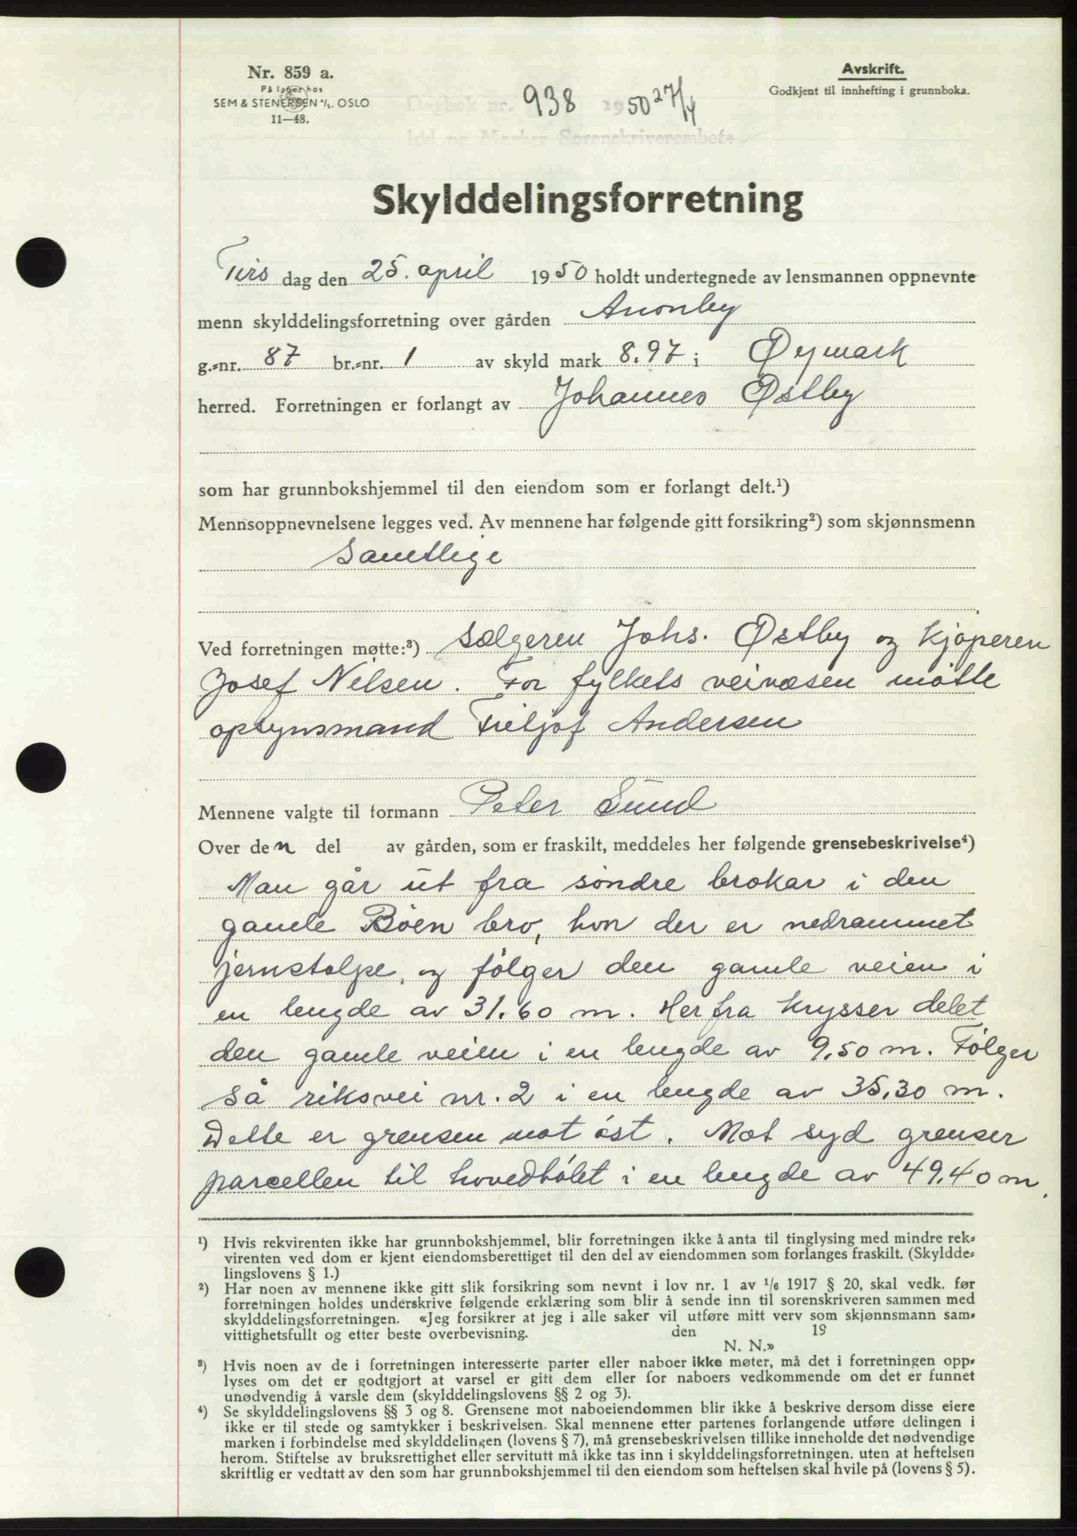 Nr. 859 a.
På lager hos
SEM & STENERSEN A/S, OSLO
11—48.
Avskrift.
Godkjent til innhefting i grunnboka.
Dagbok nr. 938 1950 27/4
Idd og Marker Sorenskriverembete.
Skylddelingsforretning
Tirs dag den 25. april 1950 holdt undertegnede av lensmannen oppnevnte
menn skylddelingsforretning over gården Anonby
g.-nr. 87 br.-nr. 1 av skyld mark 8.97 i Øymark
herred. Forretningen er forlangt av Johannes Østby
som har grunnbokshjemmel til den eiendom som er forlangt delt.¹)
Mennsoppnevnelsene legges ved. Av mennene har følgende gitt forsikring²) som skjønnsmenn
Samtlige
Ved forretningen møtte:³) Sælgeren Johs. Østby og Kjøperen
Josef Nilsen. For fylkets veivæsen møtte
opsynsmand Fritjof Andersen
Mennene valgte til formann Peter Sund
Over den del av gården, som er fraskilt, meddeles her følgende grensebeskrivelse⁴)
Man går ut fra søndre brokar i den
gamle Böen bro, hvor der er nedrammet
jernstolpe, og følger den gamle veien i
en lengde av 31.60 m. Herfra krysser delet
den gamle veien i en lengde av 9.50 m. Følger
så riksvei nr. 2 i en lengde av 35,30 m.
Dette er grensen mot øst. Mot syd grenser
parcellen til hovedbølet i en lengde av 49.40 m.
¹) Hvis rekvirenten ikke har grunnbokshjemmel, blir forretningen ikke å anta til tinglysing med mindre rek-
virenten ved dom er kjent eiendomsberettiget til den del av eiendommen som forlanges fraskilt. (Skyldde-
lingslovens § 1.)
²) Har noen av mennene ikke gitt slik forsikring som nevnt i lov nr. 1 av 1/6 1917 § 20, skal vedk. før
forretningen holdes underskrive følgende erklæring som blir å sende inn til sorenskriveren sammen med
skylddelingsforretningen. «Jeg forsikrer at jeg i alle saker vil utføre mitt verv som skjønnsmann sam-
vittighetsfullt og etter beste overbevisning. den 19
N. N.»
³) Hvis noen av de i forretningen interesserte parter eller naboer ikke møter, må det i forretningen opp-
lyses om det er godtgjort at varsel er gitt dem eller for naboers vedkommende om det er funnet
unødvendig å varsle dem (skylddelingslovens §§ 2 og 3).
⁴) Se skylddelingslovens §§ 3 og 8. Grensene mot naboeiendommen blir ikke å beskrive dersom disse eiere
ikke er til stede og samtykker i beskrivelsen. Skal mennene etter partenes forlangende utføre delingen i
marken i forbindelse med skylddelingen (lovens § 7), må grensebeskrivelsen tillike inneholde det nødvendige
herom. Stiftelse av bruksrettighet eller servitutt må ikke tas inn i skylddelingsforretningen, uten at heftelsen
skriftlig er vedtatt av den som har grunnbokshjemmel til den eiendom som heftelsen skal hvile på (lovens § 5).